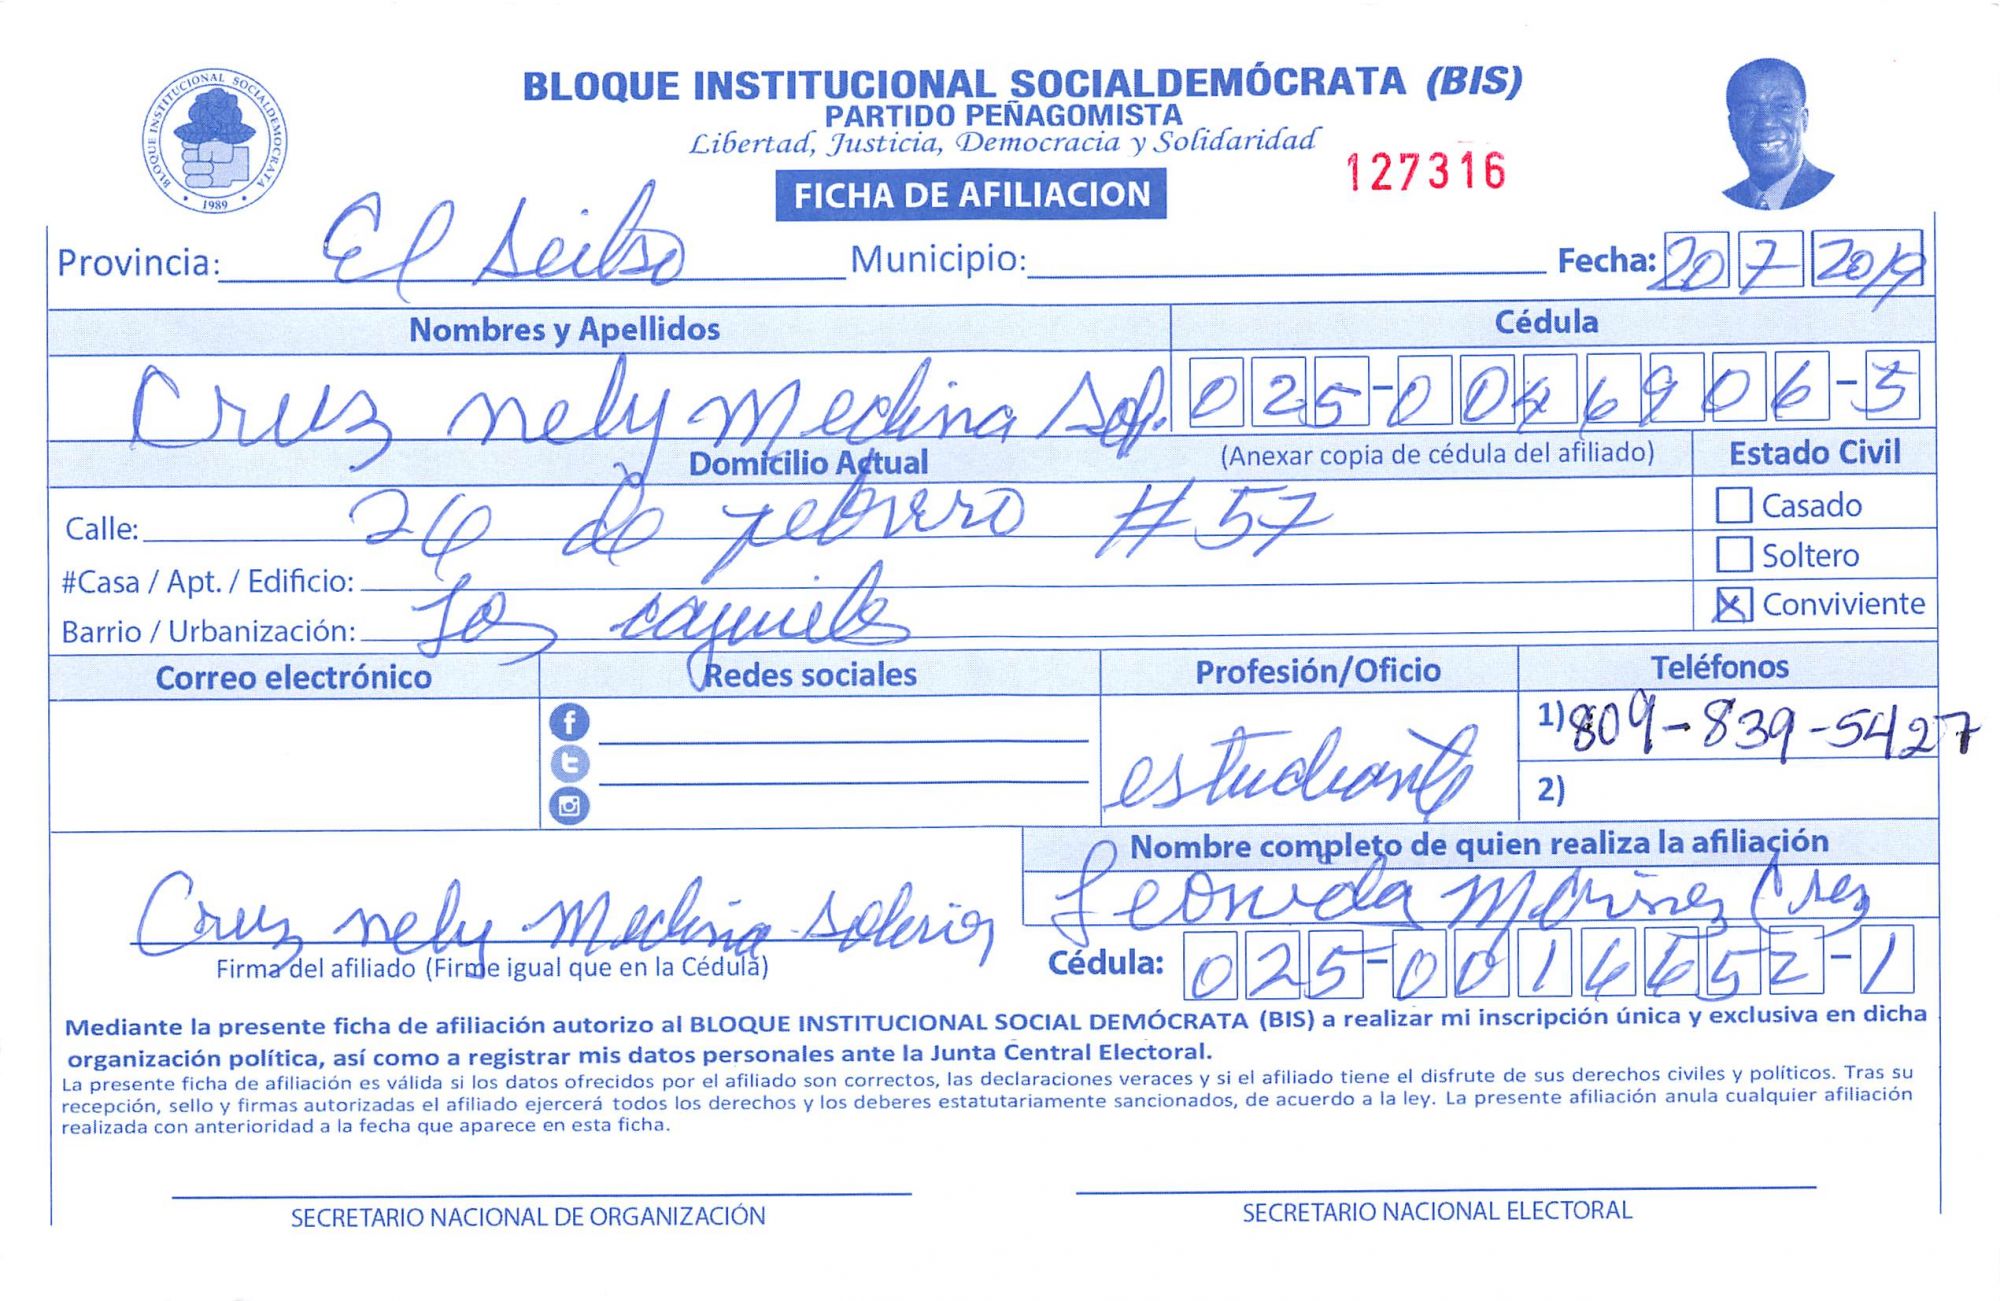 BLOQUE INSTITUCIONAL SOCIALDEMOCRATA
1989
BLOQUE INSTITUCIONAL SOCIALDEMÓCRATA (BIS)
PARTIDO PEÑAGOMISTA
Libertad, Justicia, Democracia y Solidaridad
127316
FICHA DE AFILIACION
Provincia: El Seibo Municipio: Fecha: 20 7 2019
Nombres y Apellidos Cédula
Cruz nely Medina Sol. 025-0046906-5
Domicilio Actual (Anexar copia de cédula del afiliado) Estado Civil
Calle: 26 de febrero #57 Casado
#Casa / Apt. / Edificio: Soltero
Barrio / Urbanización: Los X Conviviente
Correo electrónico Redes sociales Profesión/Oficio Teléfonos
estudiante 1) 809-839-5427
2)
Nombre completo de quien realiza la afiliación
Cruz nely Medina
Firma del afiliado (Firme igual que en la Cédula) Cédula: 025-0016652-1
Mediante la presente ficha de afiliación autorizo al BLOQUE INSTITUCIONAL SOCIAL DEMÓCRATA (BIS) a realizar mi inscripción única y exclusiva en dicha
organización política, así como a registrar mis datos personales ante la Junta Central Electoral.
La presente ficha de afiliación es válida si los datos ofrecidos por el afiliado son correctos, las declaraciones veraces y si el afiliado tiene el disfrute de sus derechos civiles y políticos. Tras su
recepción, sello y firmas autorizadas el afiliado ejercerá todos los derechos y los deberes estatutariamente sancionados, de acuerdo a la ley. La presente afiliación anula cualquier afiliación
realizada con anterioridad a la fecha que aparece en esta ficha.
SECRETARIO NACIONAL DE ORGANIZACIÓN SECRETARIO NACIONAL ELECTORAL